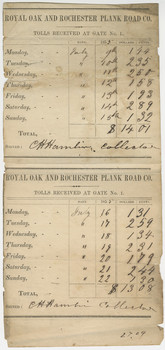 ROYAL OAK AND ROCHESTER PLANK ROAD CO.
TOLLS RECEIVED AT GATE No. 1.
Monday, July 9
Tuesday, " 10 235
Wednesday, "
Thursday, " 12 158
Friday, " 13 193
Saturday, " 14 289
Sunday, " 15 132
TOTAL, $ 1401
SIGNED: C H Hamlin Collector
ROYAL OAK AND ROCHESTER PLANK ROAD CO.
TOLLS RECEIVED AT GATE No. 1.
Monday, July 16 131
Tuesday, " 17 259
Wednesday, " 18 134
Thursday, " 19 231
Friday, " 20 179
Saturday, " 21 244
Sunday, " 22 130
TOTAL, $ 1308
SIGNED: C H Hamlin Collector
27.09